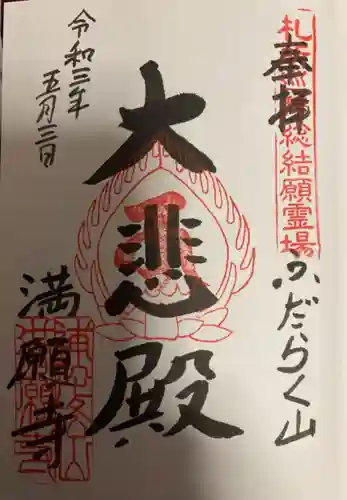 奉拝
札所無番総結願霊場
ふだらく山
大悲殿
令和三年
五月三日
満願寺